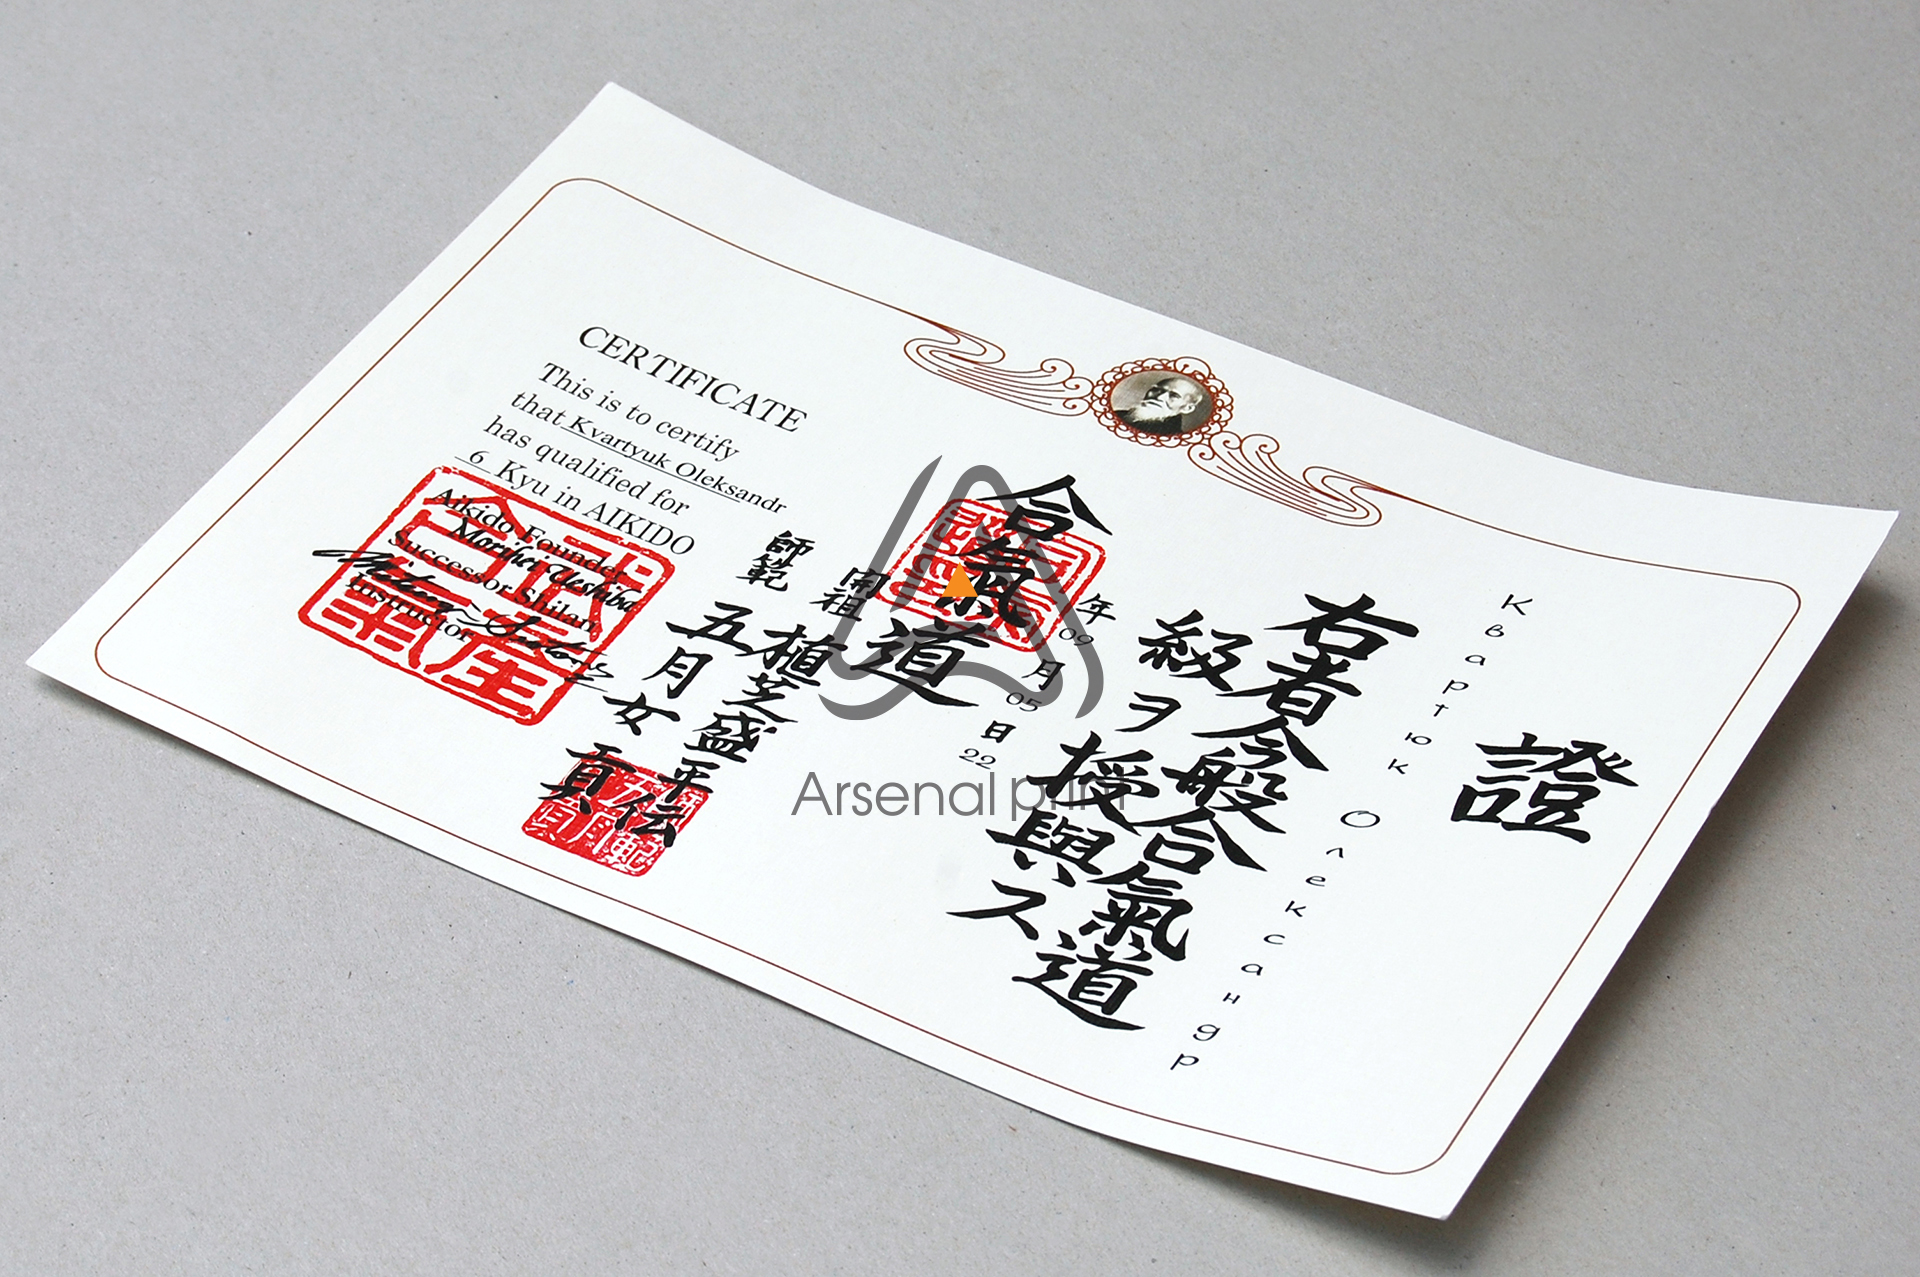 CERTIFICATE
This is to certify
that Kvartyuk Oleksandr
has qualified for
6 Kyu in AIKIDO
Aikido Founder
Morihei Ueshiba
Successor Shihan
Instructor
證
Квартюк Олександр
右者今般合氣道
級ヲ授與ス
年 09 月 05 日 22
合氣道
開祖 植芝盛平伝
師範 五月女貢
Arsenal print